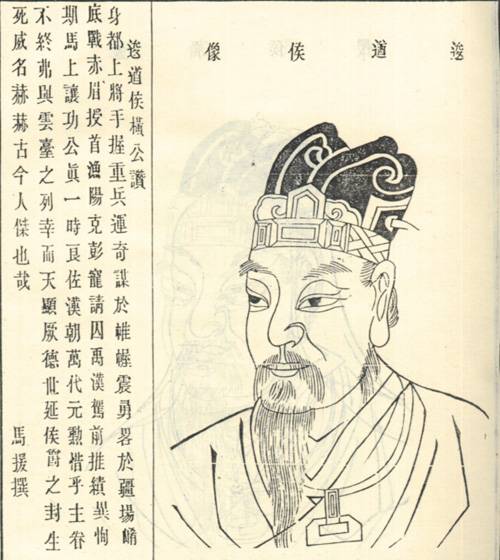 逡道侯像
逡道侯橫公讚
身都上將手握重兵運奇謀於帷幄震勇畧於疆場崤
底戰赤眉授首漁陽克彭寵請囚禹漢駕前推績異恂
期馬上讓功公眞一時良佐漢朝萬代元勳惜乎主眷
不終弗與雲臺之列幸而天顯厥德世延侯爵之封生
死威名赫赫古今人傑也哉
馬援撰